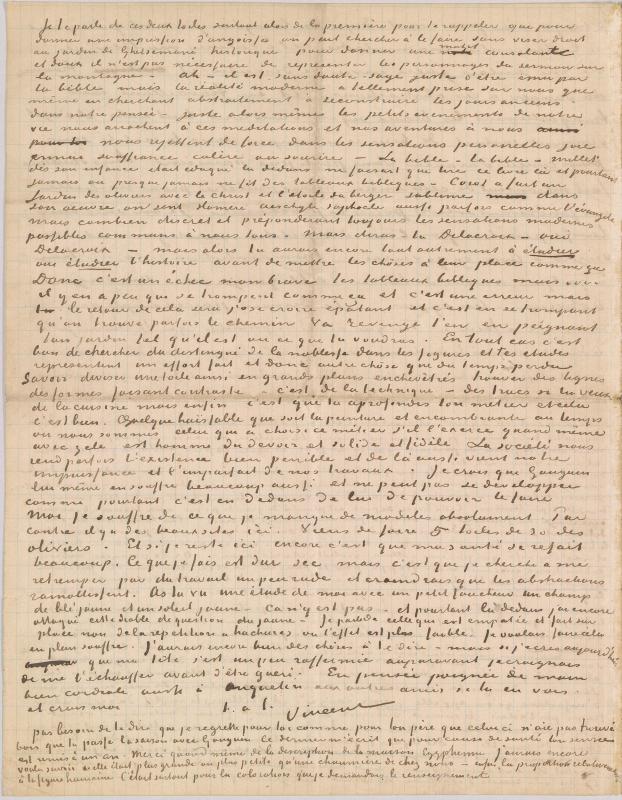 Je te parle de ces deux toiles surtout alors de la première pour te rappeler que pour
donner une impression d'angoisse on peut chercher à le faire sans viser droit
au jardin de Ghetsemané historique pour donner une motif consolante
et doux il n'est pas nécessaire de representer les personnages du sermon sur
la montagne – ah – il est sans doute sage juste d'être ému par
la bible mais la réalité moderne a tellement prise sur nous que
même en cherchant abstraitement à reconstruire les jours anciens
dans notre pensée – juste alors même les petits evenements de notre
vie nous arrachent à ces meditations et nos aventures à nous
nous rejettent de force dans les sensations personelles joie
ennui souffrance colère ou sourire – La bible – la bible – Millet
dès son enfance était eduqué là dedans ne faisait que lire ce livre là et pourtant
jamais ou presque jamais ne fit des tableaux bibliques – Corot a fait un
Jardin des oliviers avec le christ et l'étoile du berger sublime dans
son œuvre on sent Homere aeschyle sophocle aussi parfois comme l'évangile
mais combien discret et préponderant toujours les sensations modernes
possibles communs à nous tous. Mais diras-tu Delacroix – oui
Delacroix – mais alors tu aurais encore tout autrement à étudier
oui étudier l'histoire avant de mettre les chôses à leur place comme ça
Donc c'est un échec mon brave les tableaux bibliques mais …
il y en a peu qui se trompent comme ça et c'est une erreur mais
le retour de cela sera j'ose croire épatant et c'est en se trompant
qu'on trouve parfois le chemin Va revenge t'en en peignant
ton jardin tel qu'il est ou ce que tu voudras. En tout cas c'est
bon de chercher du distingué de la noblesse dans les figures et tes etudes
representent un effort fait et donc autre chôse que du temps perdu
Savoir diviser une toile ainsi en grands plans enchevêtrés trouver des lignes
des formes faisant contraste c'est de la technique – des trucs si tu veux
de la cuisine mais enfin c'est que tu aprofondis ton métier et cela
c'est bien. Quelque haïssable que soit la peinture et encombrante au temps
où nous sommes celui qui a choisi ce métier s'il l'exerce quand même
avec zele est homme du devoir et solide et fidèle La société nous
rend parfois l'existence bien penible et de là aussi vient notre
impuissance et l'imparfait de nos travaux. Je crois que Gauguin
lui même en souffre beaucoup aussi et ne peut pas se developper
comme pourtant c'est en dedans de lui de pouvoir le faire
Moi je souffre de ce que je manque de modèles absolument Par
contre il y a des beaux sites ici. Viens de faire 5 toiles de 30 des
oliviers. Et si je reste ici encore c'est que ma santé se refait
beaucoup. Ce que je fais est dur sec mais c'est que je cherche à me
retremper par du travail un peu rude et craindrais que les abstractions
ramollissent. As tu vu une étude de moi avec un petit faucheur un champ
de blé jaune et un soleil jaune – ça n'y est pas – et pourtant là dedans j'ai encore
attaqué cette diable de question du jaune – Je parle de celle qui est empatée et fait sur
place non de la repetition à hachures où l'effet est plus faible Je voulais faire cela
en plein souffre. J'aurais encore bien des chôses à te dire – mais si j'ecris aujourd'hui
que ma tête s'est un peu raffermie auparavant je craignais
de me l'échauffer avant d'être guéri. En pensée poignée de main
bien cordiale aussi à Anquetin aux autres amis si tu en vois.
et crois moi
t. à t. Vincent
pas besoin de te dire que je regrette pour toi comme pour ton père que celui ci n'aie pas trouvé
bon que tu passes la saison avec Gauguin Ce dernier m'écrit que pour cause de santé ton service
est remis à un an. Merci quand même de la description de la maison Egyptienne J'aurais encore
voulu savoir si elle était plus grande ou plus petite qu'une chaumière de chez nous – enfin la proportion relativement
à la figure humaine C'était surtout pour la coloration que je demandais le renseignement